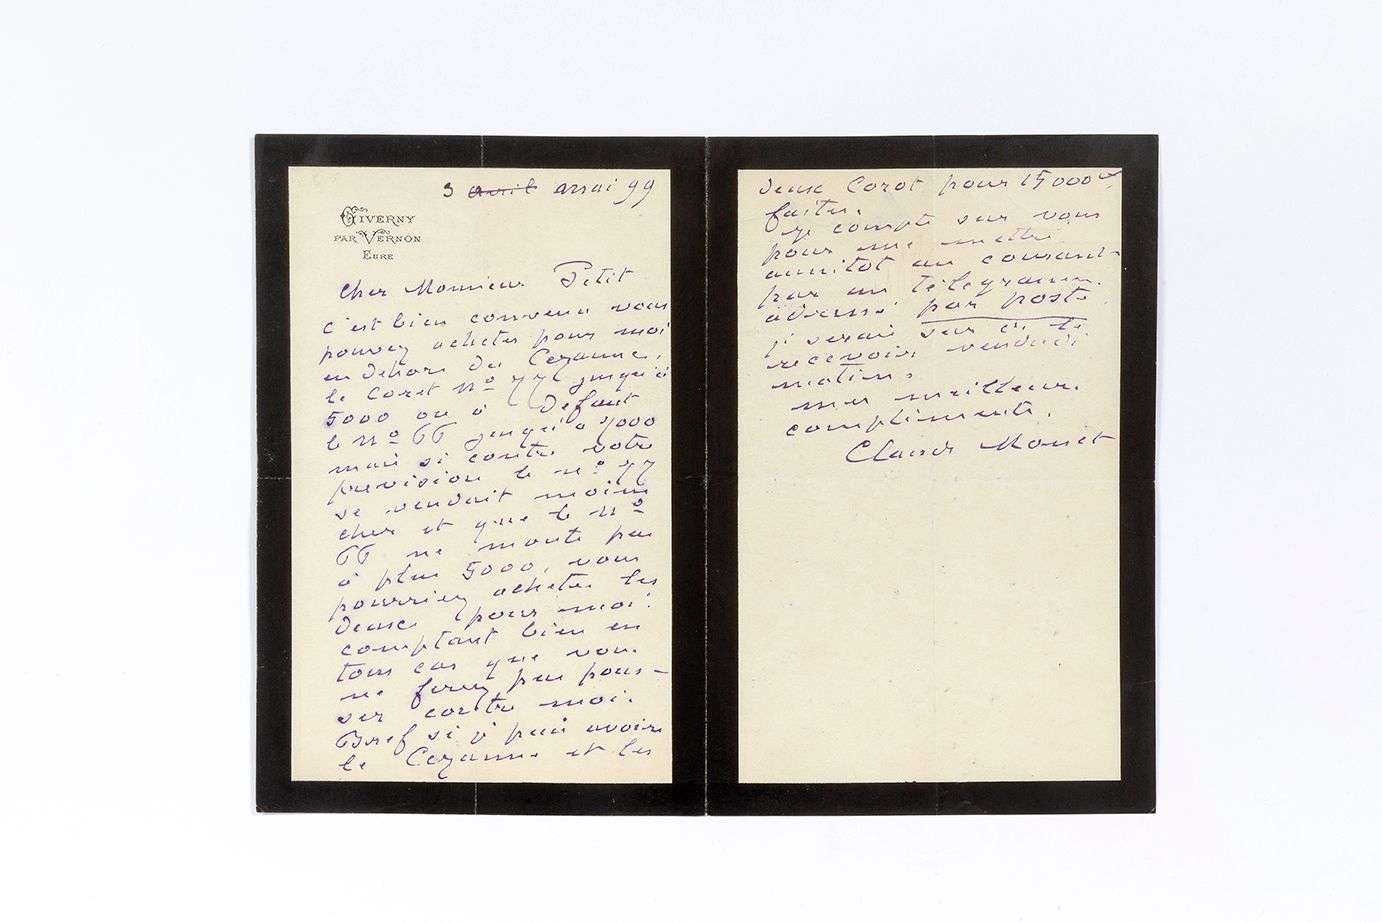 3 avril mai 99
GIVERNY
PAR VERNON
EURE
cher Monsieur Petit
c'est bien convenu vous
pouvez acheter pour moi
en dehors du Cezanne,
le Corot No 77 jusqu'à
5000 ou à défaut
le No 66 jusqu'à 9000
mais si contre votre
prevision le no 77
se vendait moins
cher et que le No
66 ne monte pas
à plus 5000, vous
pourriez acheter les
deux pour moi.
comptant bien en
tous cas que vous
ne ferez pas pous-
ser contre moi.
Bref si j'puis avoir
le Cezanne et les
deux Corot pour 15000
faites.
je compte sur vous
pour me mettre
aussitot au courant
par un télégramme
adressé par poste
je serais sur de le
recevoir vendredi
matin.
mes meilleurs
compliments.
Claude Monet